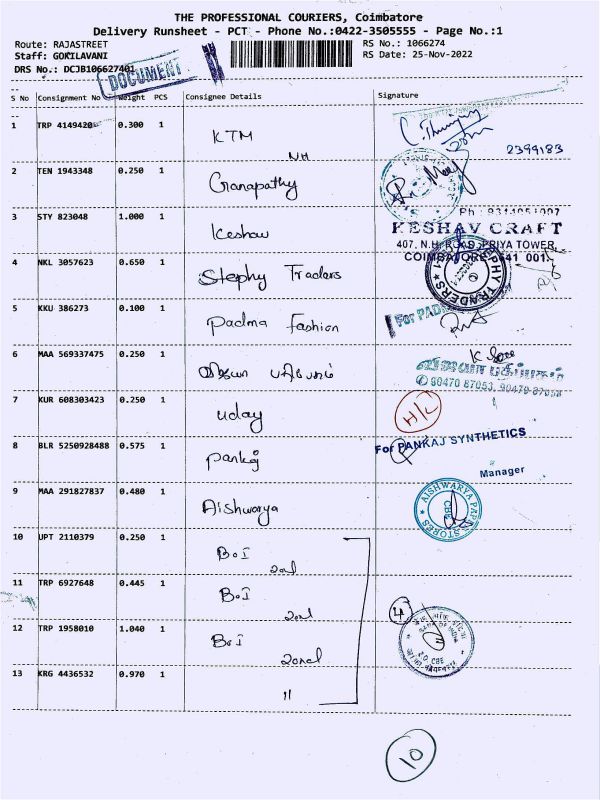 THE PROFESSIONAL COURIERS, Coimbatore
Delivery Runsheet - PCT - Phone No.:0422-3505555 - Page No.:1
Route: RAJASTREET
RS No.: 1066274
Staff: GOKILAVANI
RS Date: 25-Nov-2022
DRS No.: DCJB106627401
DOCUMENT
S No Consignment No Weight PCS Consignee Details Signature
1 TRP 4149420 0.300 1 KTM
NH
2399183
2 TEN 1943348 0.250 1 Ganapathy
3 STY 823048 1.000 1 Keshav
KESHAV CRAFT
407, N.H. ROAD, PRIYA TOWER,
COIMBATORE-641 001.
4 NKL 3057623 0.650 1 Stephy Traders
5 KKU 386273 0.100 1 Padma Fashion
For PAD
6 MAA 569337475 0.250 1 விஜயா பதிப்பகம்
விஜயா பதிப்பகம்
90470 87053, 90470 87058
7 KUR 608303423 0.250 1 uday
H/C
8 BLR 5250928488 0.575 1 Pankaj
For PANKAJ SYNTHETICS
Manager
9 MAA 291827837 0.480 1 Aishwarya
AISHWARYA PAPER STORES
CBE
10 UPT 2110379 0.250 1 BoI
zonl
11 TRP 6927648 0.445 1 BoI
zonl
12 TRP 1958010 1.040 1 BoI
zonel
4
13 KRG 4436532 0.970 1 11
10